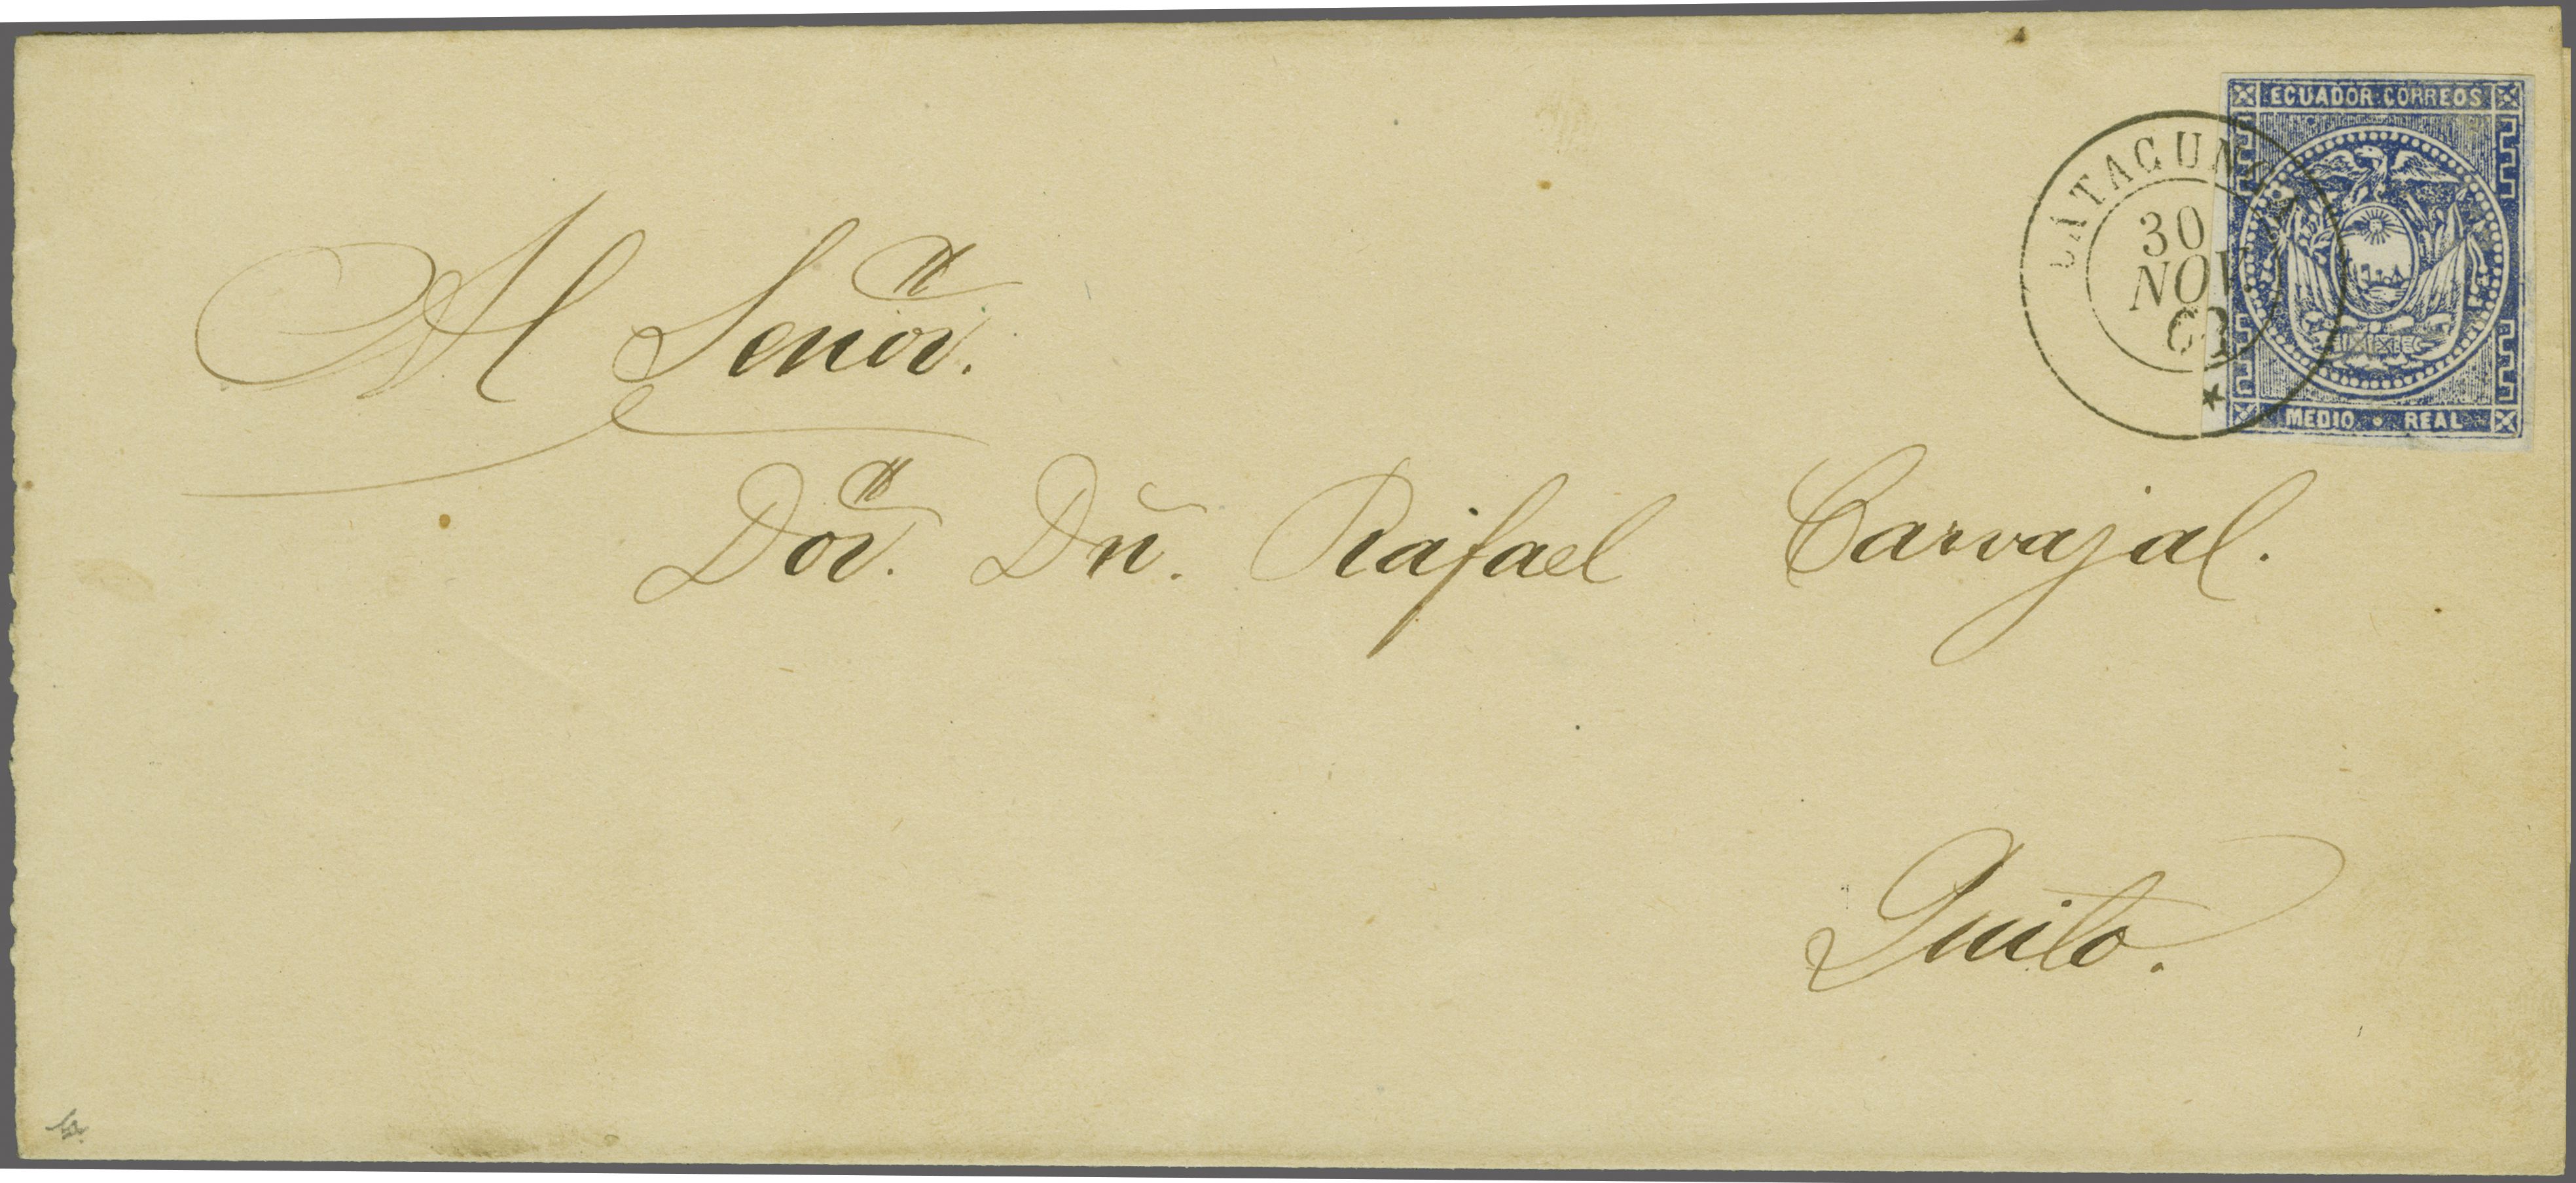 ECUADOR CORREOS
LATACUNGA
30
NOV
MEDIO · REAL
Al Señor.
Dor. Dn. Rafael Carvajal.
Quito.